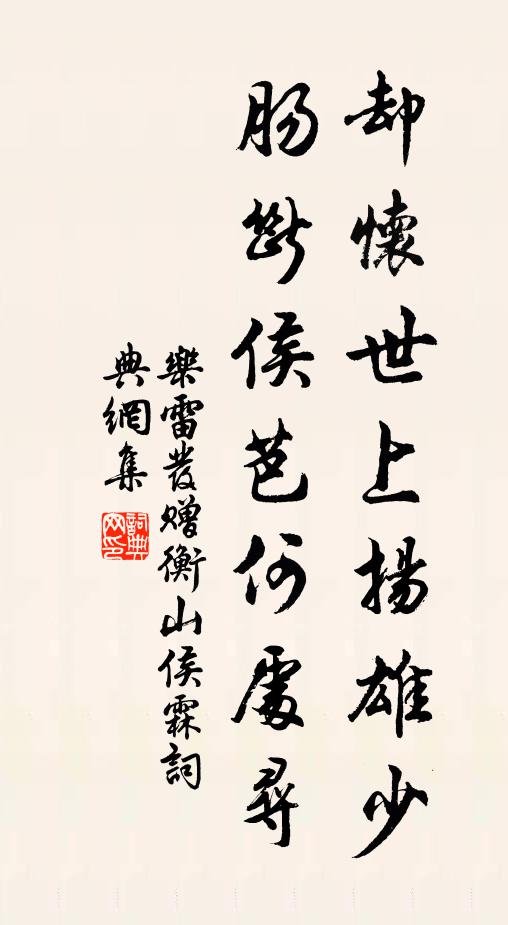 却懷世上揚雄少
腸斷侯芭何處尋
樂雷發贈衡山侯霖詞
典網集
詞典
网印